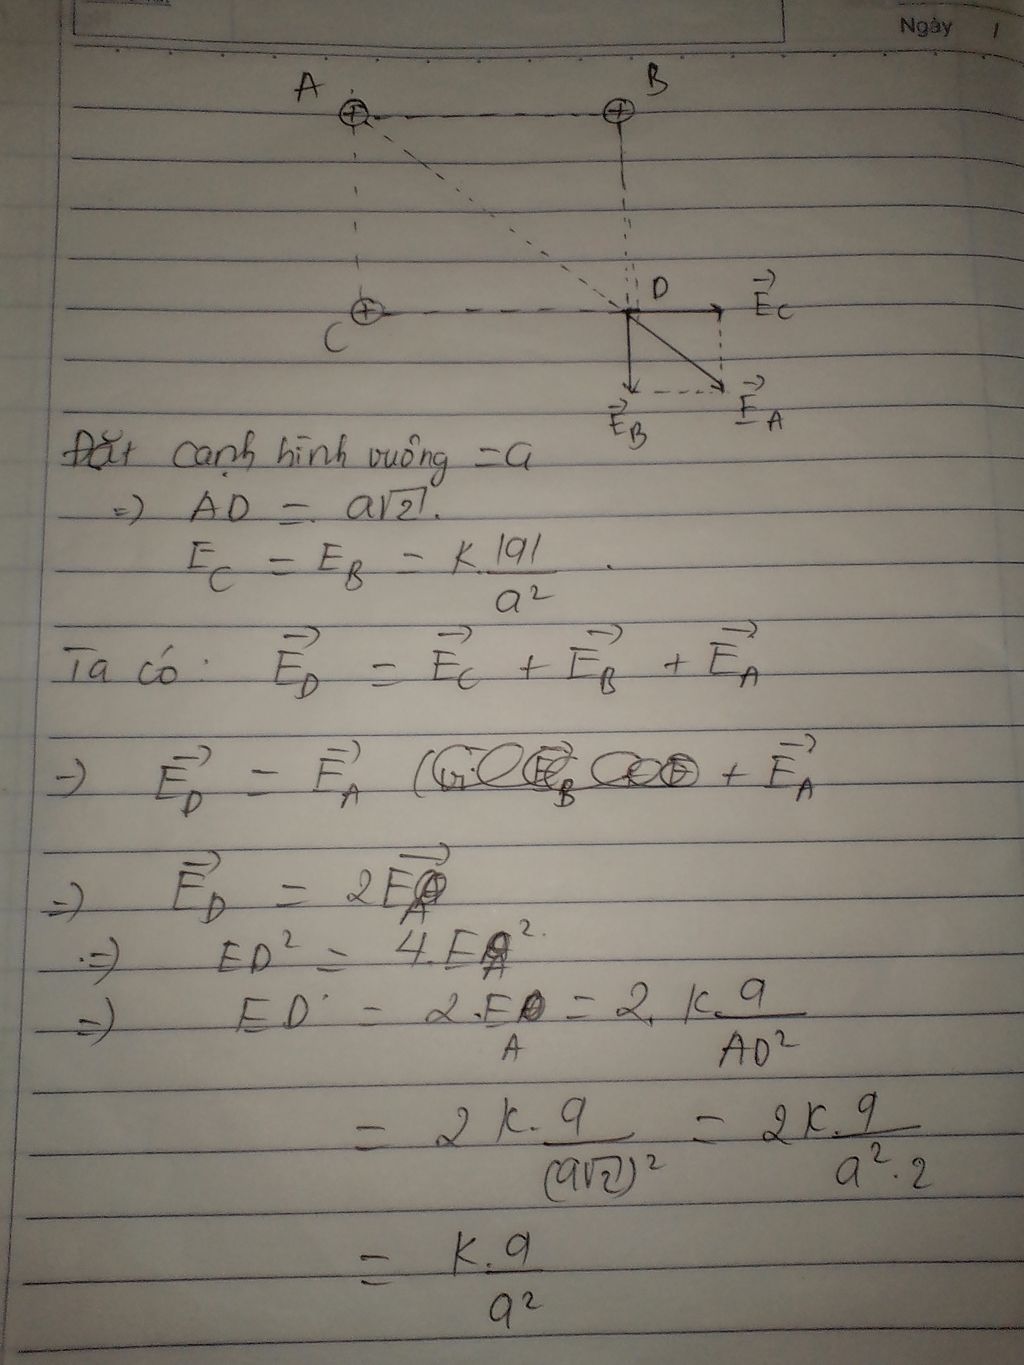 Ngày /
A B
D \vec{E}_C
C
\vec{E}_B \vec{E}_A
Đặt cạnh hình vuông = a
=> AD = a√2.
E_C = E_B = k.|q|/a².
Ta có: \vec{E_D} = \vec{E_C} + \vec{E_B} + \vec{E_A}
=> \vec{E_D} = \vec{E_A} + \vec{E_A}
=> \vec{E_D} = 2\vec{E_A}
=> ED² = 4.E_A²
=> ED = 2.E_A = 2.k.q/AD²
= 2k.q/(a√2)² = 2k.q/a².2
= k.q/a²